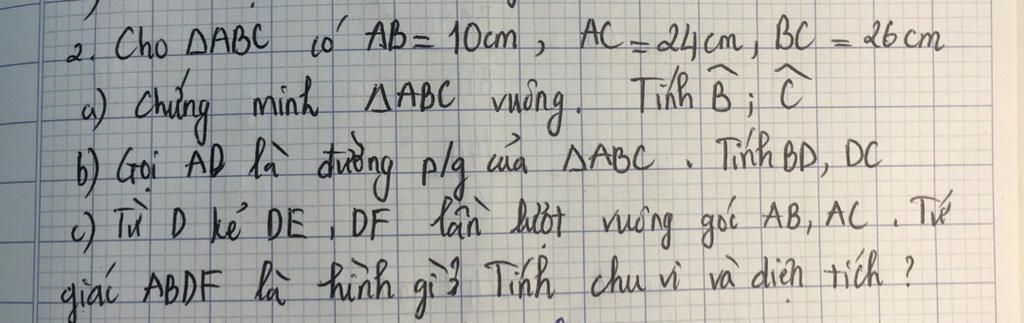 2. Cho ΔABC có AB = 10cm, AC = 24cm, BC = 26cm
a) Chứng minh ΔABC vuông. Tính B̂; Ĉ
b) Gọi AD là đường p/g của ΔABC. Tính BD, DC
c) Từ D kẻ DE, DF lần lượt vuông góc AB, AC. Tứ
giác ABDF là hình gì? Tính chu vi và diện tích?